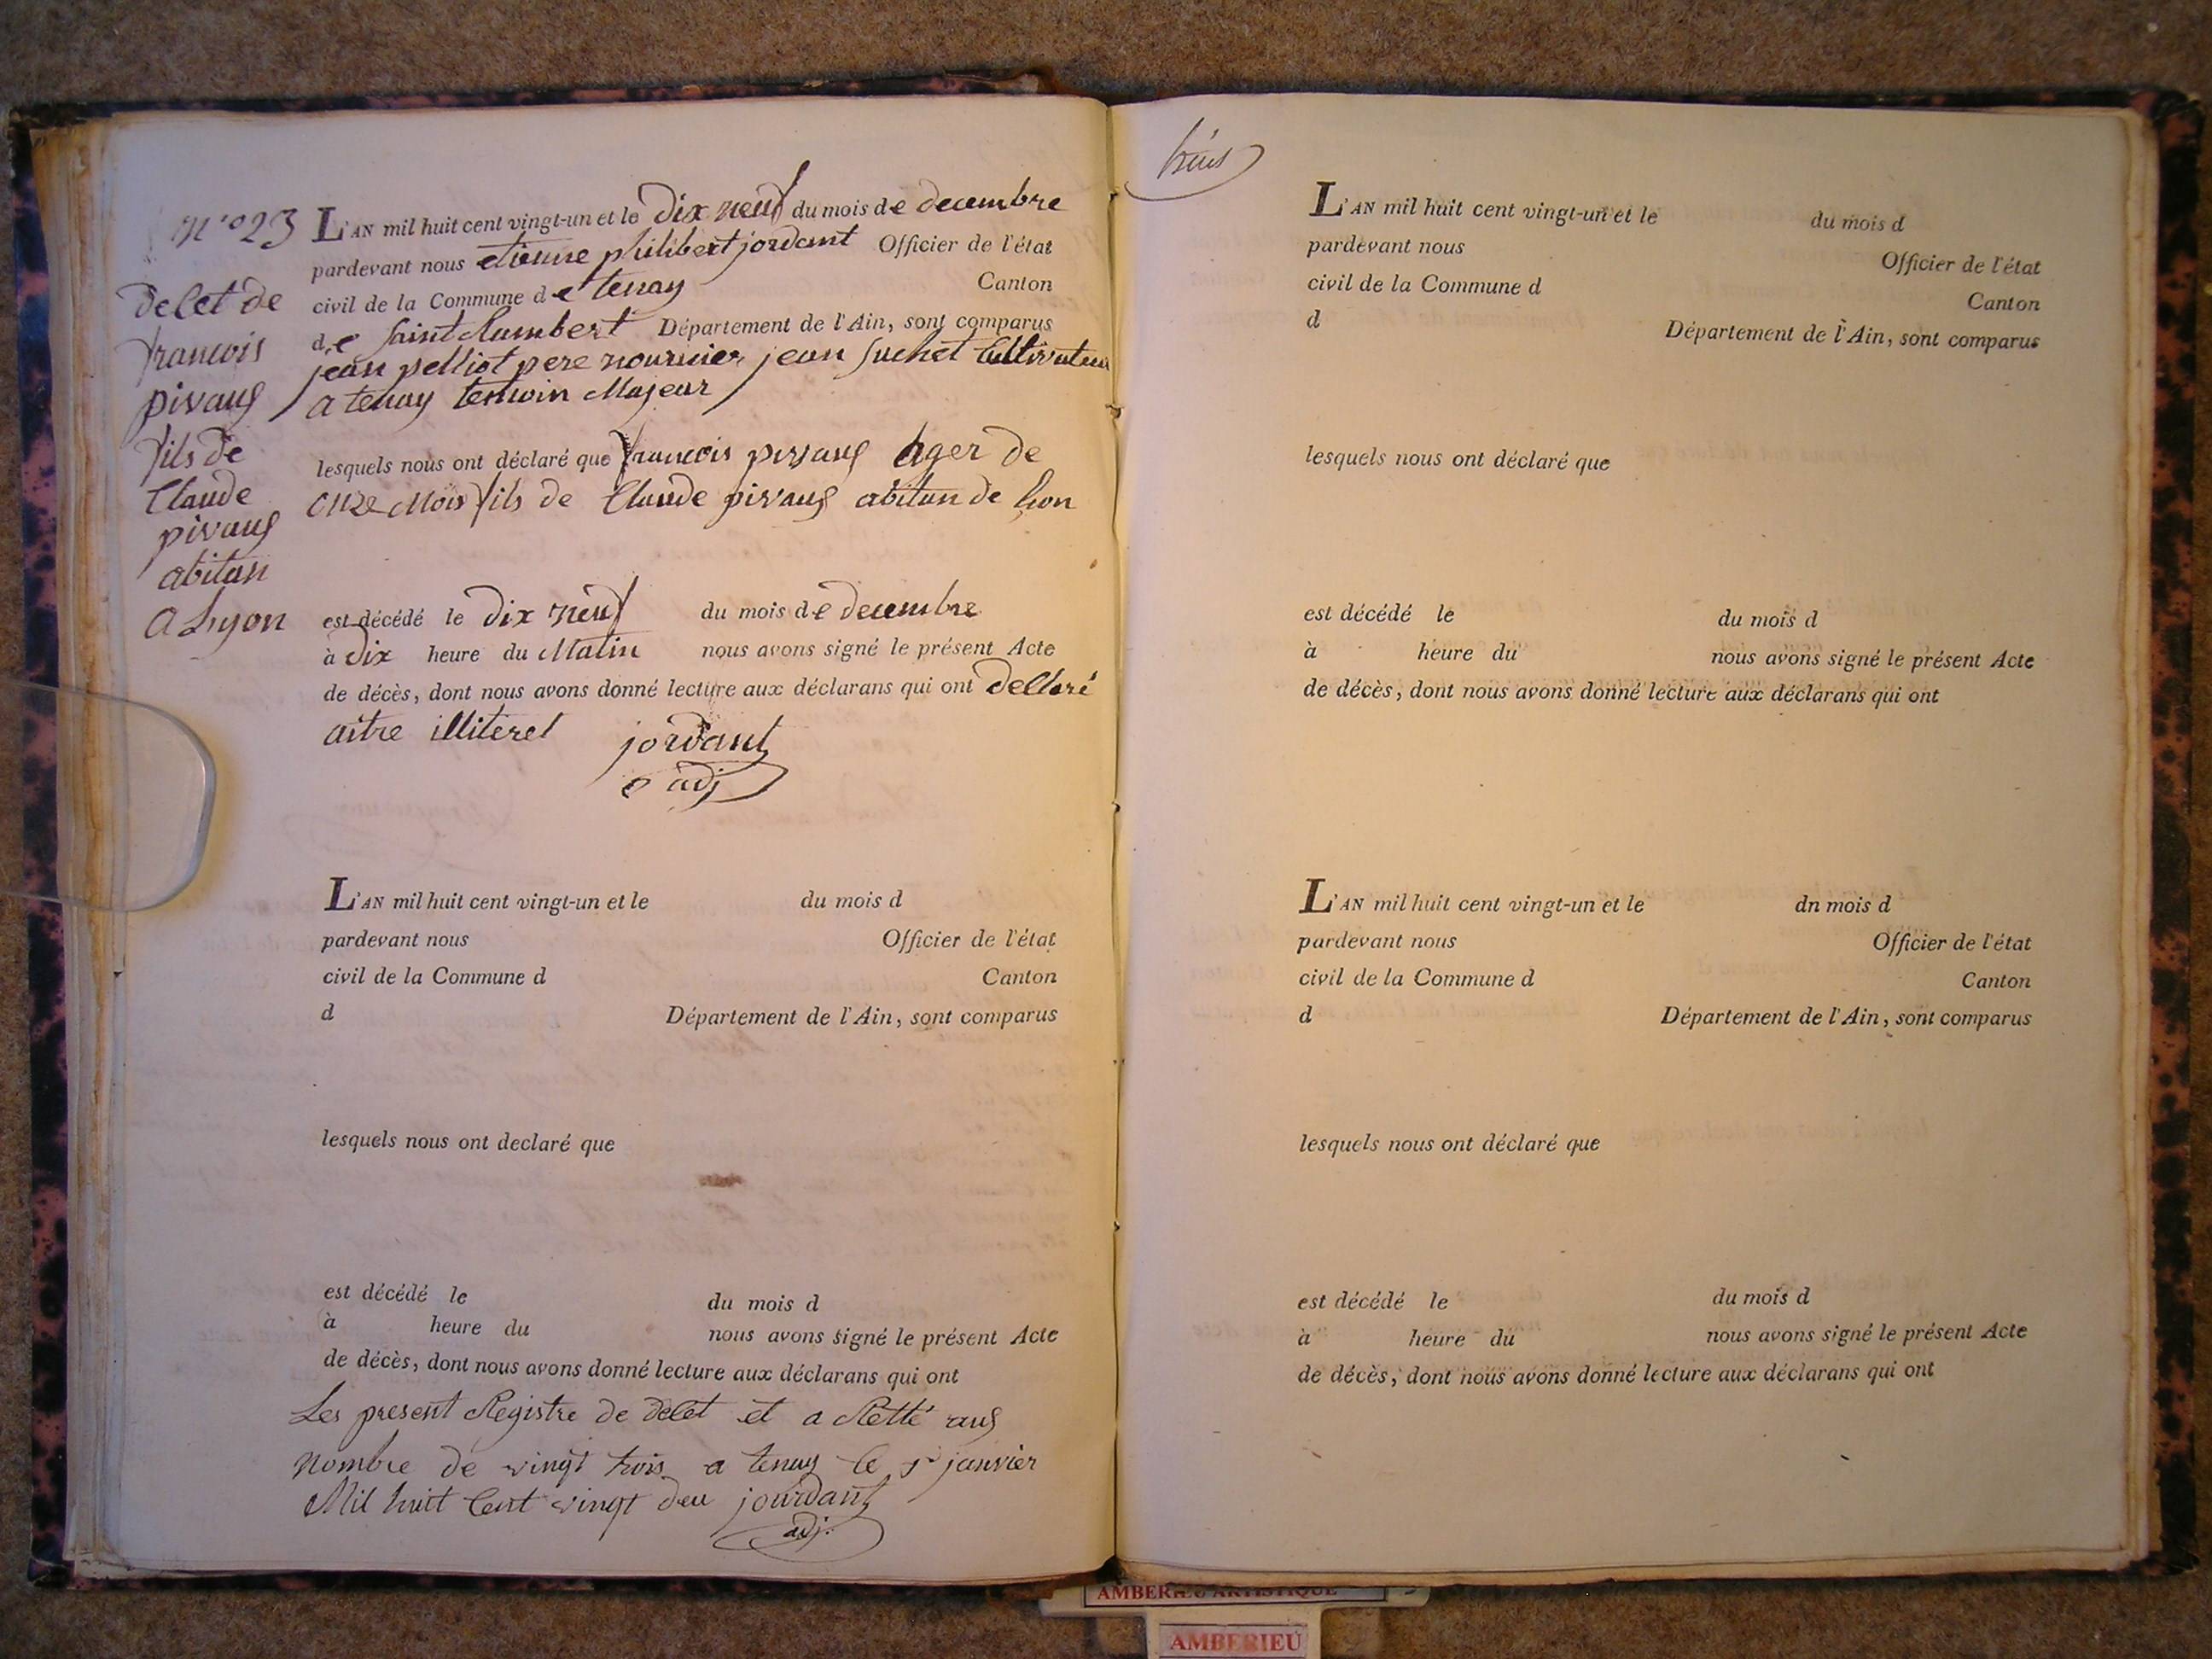 N° 23
Delet de
francois
pivaug
fils de
Claude
pivaug
abitan
a Lyon
L'AN mil huit cent vingt-un et le dix neuf du mois de decembre
pardevant nous etienne philibert jordant Officier de l'état
civil de la Commune de tenay Canton
de Saint Rambert Département de l'Ain, sont comparus
jean pelliot pere nouricier jean suchet Cultivateur
a tenay temoin Majeur
lesquels nous ont déclaré que francois pivaug Ager de
onze Mois fils de Claude pivaug abitan de Lion
est décédé le dix neuf du mois de decembre
à dix heure du Matin nous avons signé le présent Acte
de décès, dont nous avons donné lecture aux déclarans qui ont Delleré
aitre illiteret jordant
adj
L'AN mil huit cent vingt-un et le du mois d
pardevant nous Officier de l'état
civil de la Commune d Canton
d Département de l'Ain, sont comparus
lesquels nous ont declaré que
est décédé le du mois d
à heure du nous avons signé le présent Acte
de décès, dont nous avons donné lecture aux déclarans qui ont
Les present Registre de delet et a Retté aug
nombre de vingt trois a tenay le 1r janvier
Mil huit Cent vingt deu jourdant
adj.
L'AN mil huit cent vingt-un et le du mois d
pardevant nous Officier de l'état
civil de la Commune d Canton
d Département de l'Ain, sont comparus
lesquels nous ont déclaré que
est décédé le du mois d
à heure du nous avons signé le présent Acte
de décès, dont nous avons donné lecture aux déclarans qui ont
L'AN mil huit cent vingt-un et le dn mois d
pardevant nous Officier de l'état
civil de la Commune d Canton
d Département de l'Ain, sont comparus
lesquels nous ont déclaré que
est décédé le du mois d
à heure du nous avons signé le présent Acte
de décès, dont nous avons donné lecture aux déclarans qui ont
AMBERIEU ARTISTIQUE
AMBERIEU